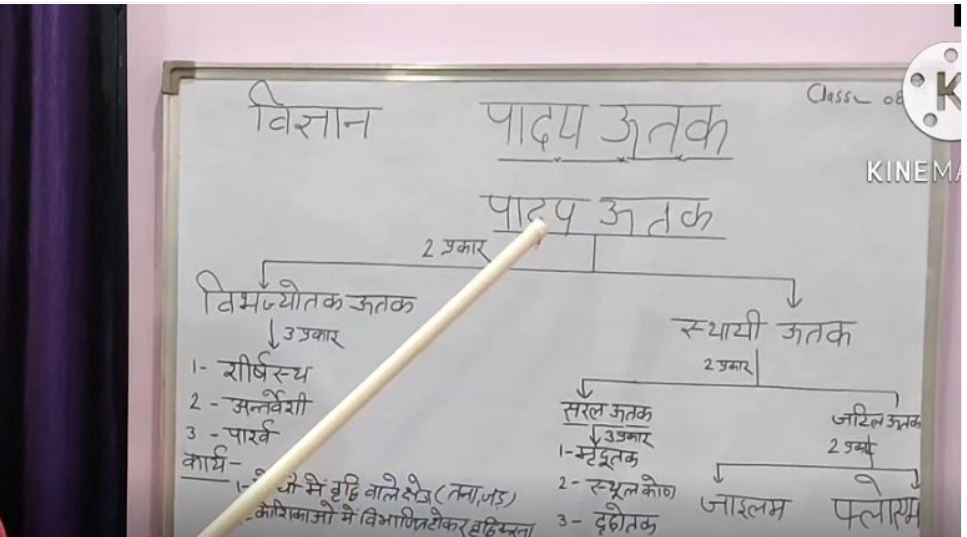 विज्ञान पादप ऊतक Class 08
K
KINEMA
पादप ऊतक
2 प्रकार
विभज्योतक ऊतक
3 प्रकार
1- शीर्षस्थ
2 - अन्तर्वेशी
3 - पार्श्व
कार्य -
में वृद्धि वाले क्षेत्र (तना, जड़)
कोशिकाओं में विभाजित होकर वृद्धि करना
स्थायी ऊतक
2 प्रकार
सरल ऊतक
3 प्रकार
1- मृदूतक
2 - स्थूलकोण
3 - दृढ़ोतक
जटिल ऊतक
2 प्रकार
जाइलम फ्लोएम